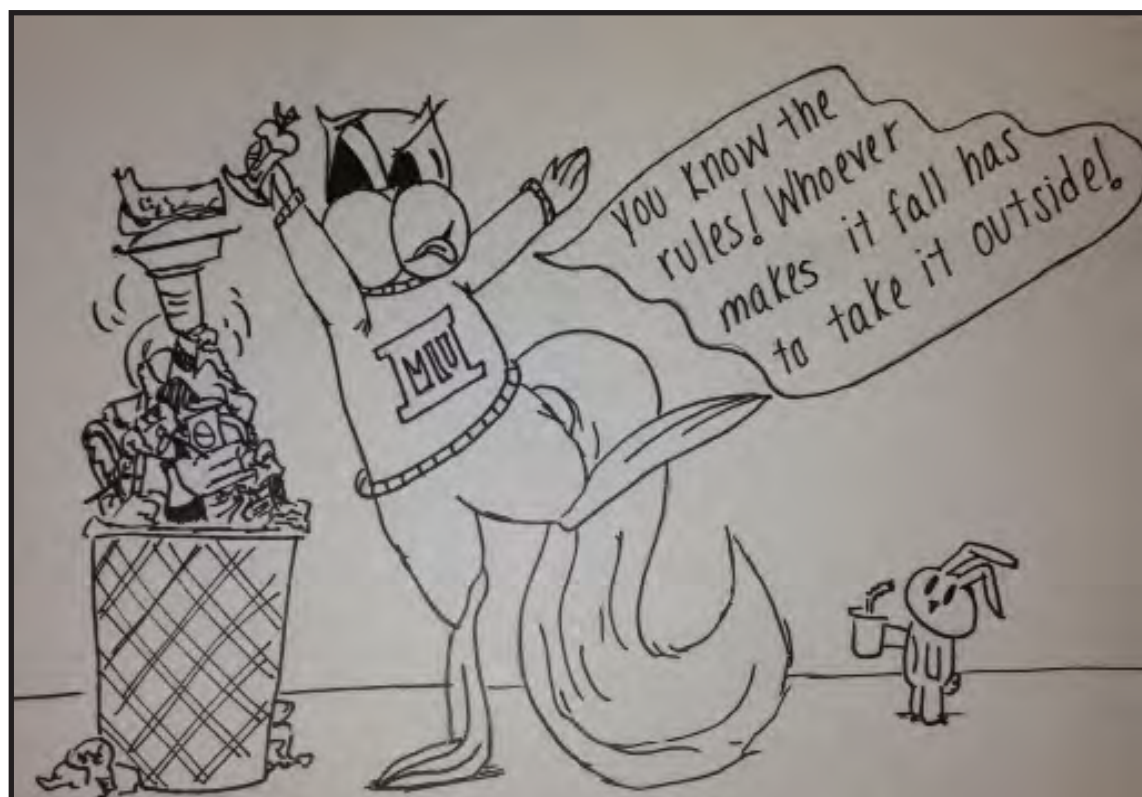 you know the
rules! Whoever
makes it fall has
to take it outside!